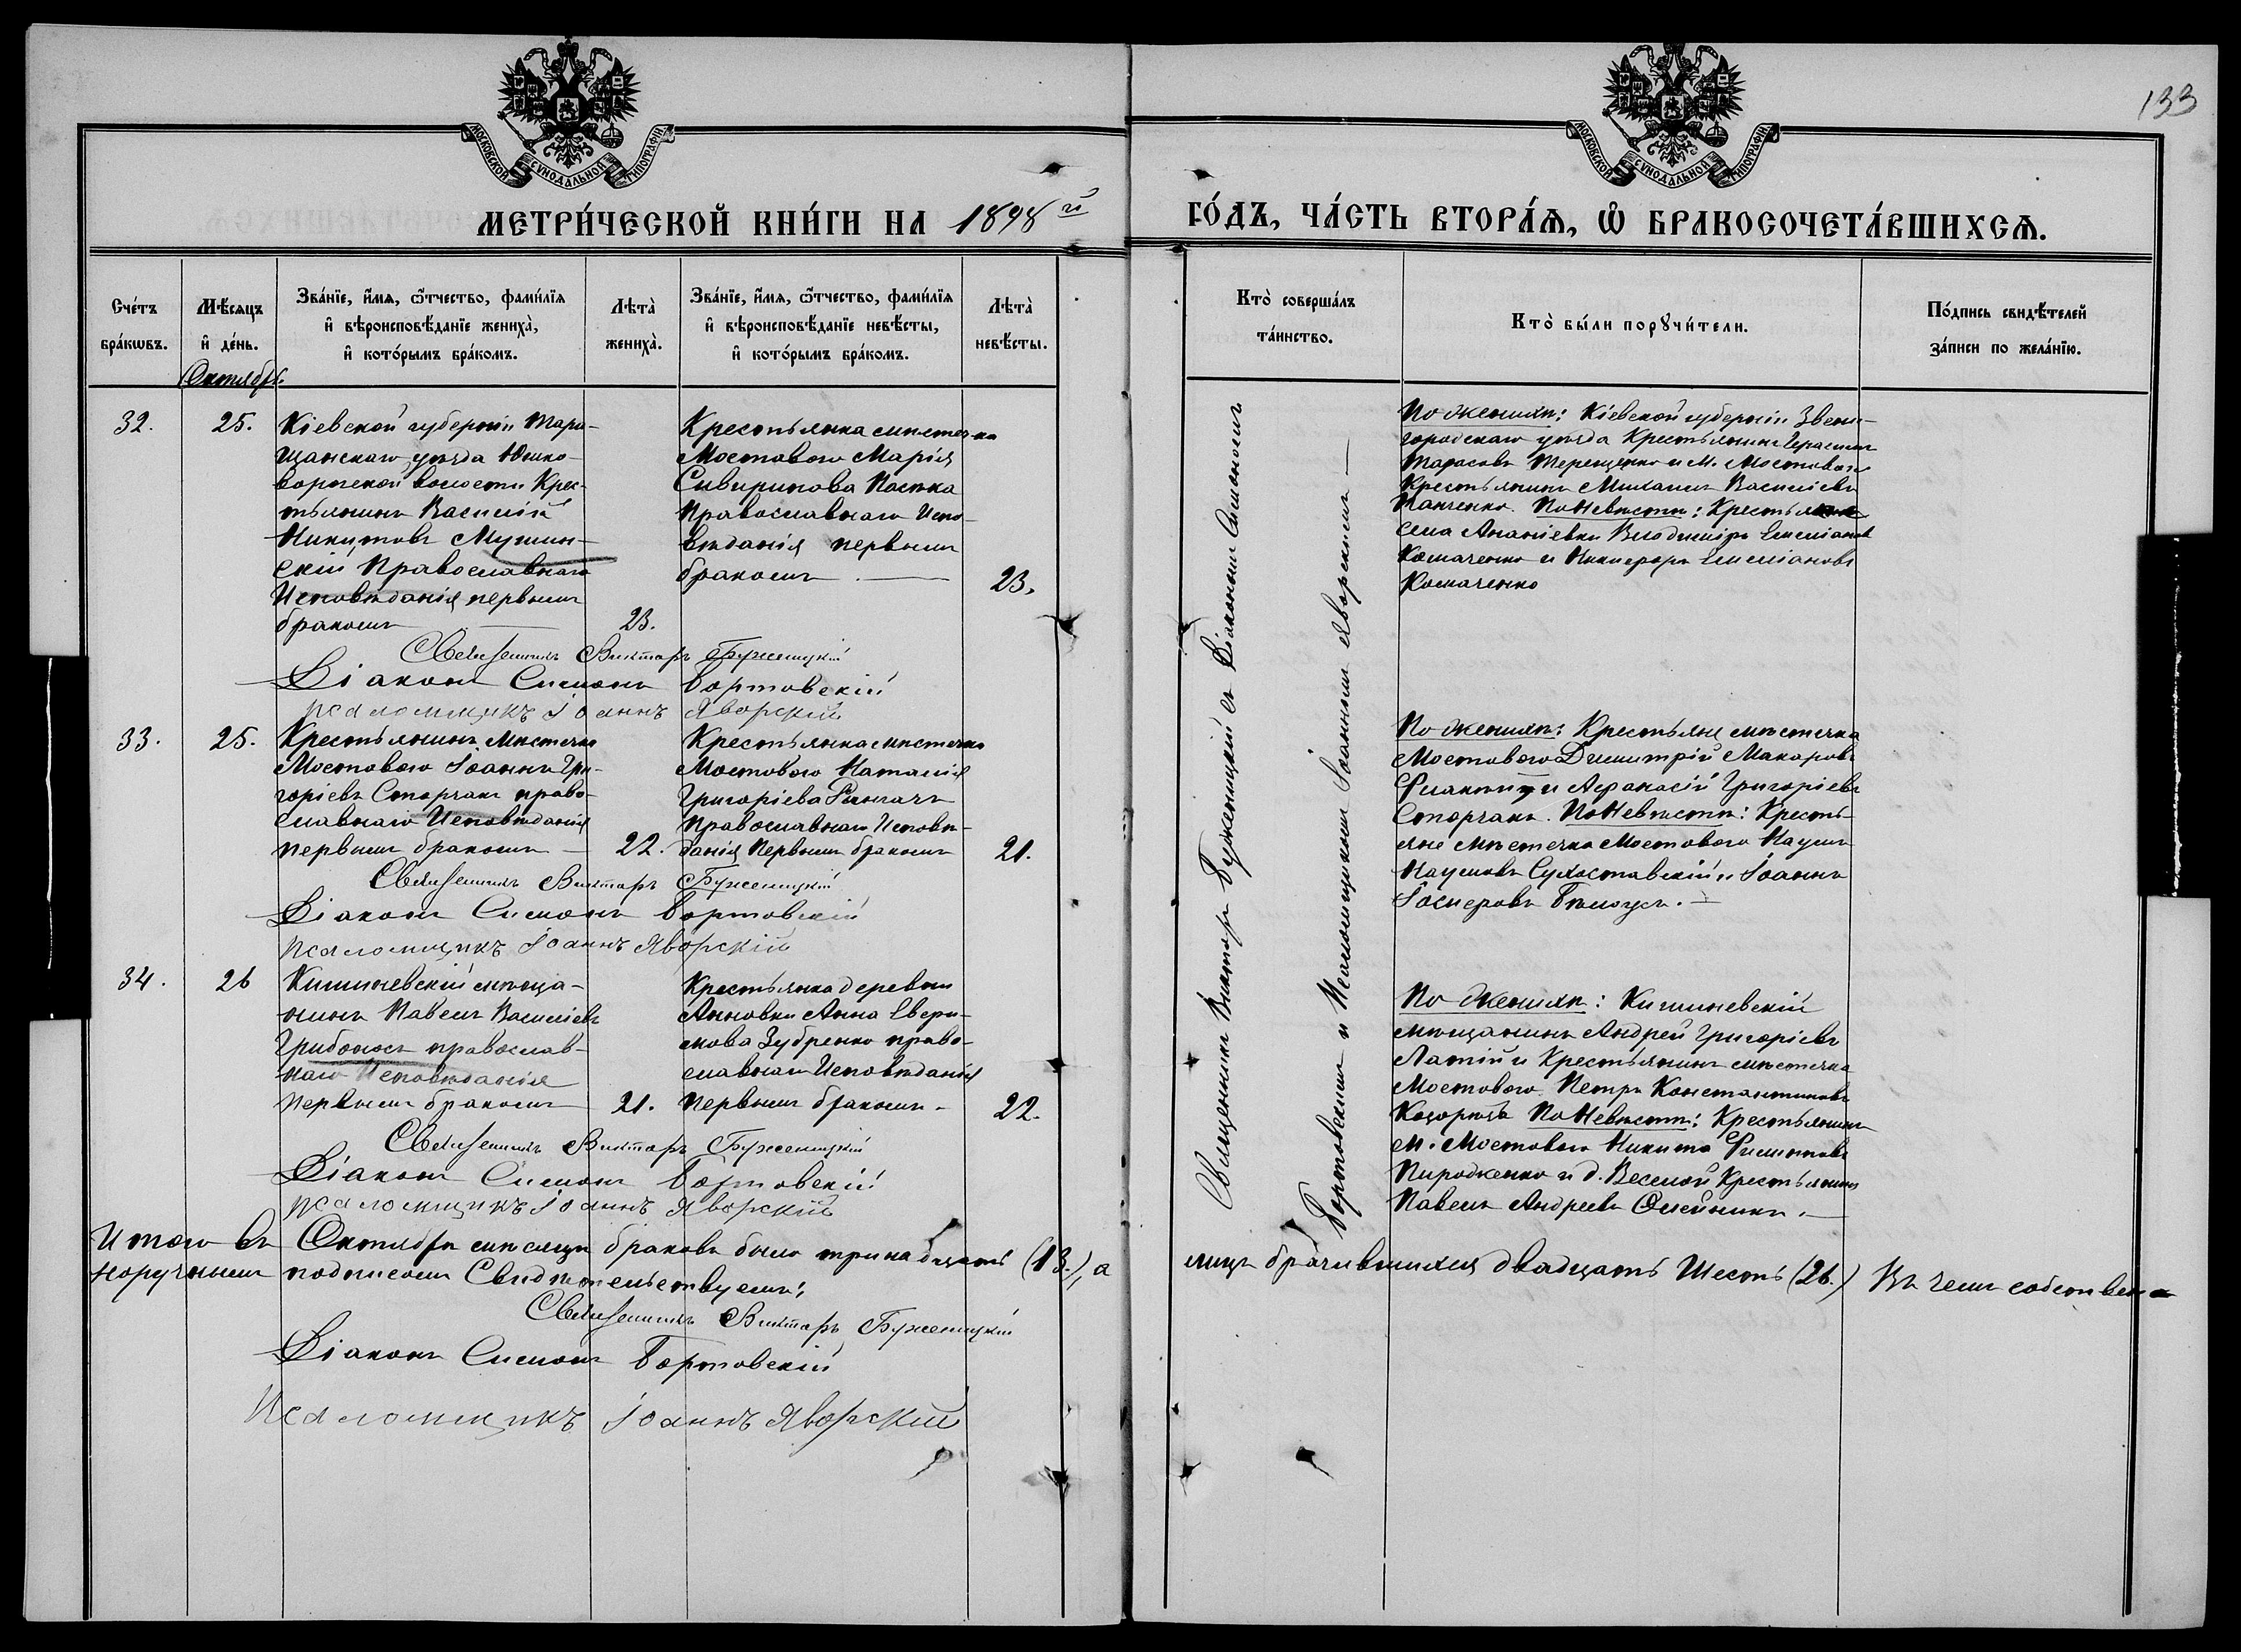 133
МОСКОВСКОЙ СѴНОДАЛЬНОЙ ТИПОГРАФІИ
МОСКОВСКОЙ СѴНОДАЛЬНОЙ ТИПОГРАФІИ
МЕТРИ́ЧЕСКОЙ КНИ́ГИ НА 1898й
ГО́ДЪ, ЧА́СТЬ ВТОРА́Ѧ, Ѽ БРАКОСОЧЕТА́ВШИХСѦ.
Сче́тъ
бра́кωвъ.
Мѣ́сяцъ
и҆ де́нь.
Зва́нїе, и҆́мѧ, ѻ҆́тчество, фами́лїѧ
и҆ вѣроисповѣ́данїе жениха̀,
и҆ кото́рымъ бра́комъ.
Лѣта̀
жениха̀.
Зва́нїе, и҆́мѧ, ѻ҆́тчество, фами́лїѧ
и҆ вѣроисповѣ́данїе невѣ́сты,
и҆ кото́рымъ бра́комъ.
Лѣта̀
невѣ́сты.
Кто̀ соверша́лъ
та́инство.
Кто̀ бы́ли порꙋчи́тели.
По́дпись свидѣ́телей
за́писи по жела́нїю.
Октябрь
32.
25.
Кіевской губерніи Тара-
щанскаго уѣзда Юшко-
ворогской волости Крес-
тьянинъ Василій
Никитовъ Мушин-
скій Православнаго
Исповѣданія первымъ
бракомъ
23.
Крестьянка мѣстечка
Мостоваго Марія
Сивиринова Пасѣка
Православнаго Испо-
вѣданія первымъ
бракомъ
23.
По женихѣ: Кіевской губерніи Звени-
городскаго уѣзда Крестьянинъ Герасимъ
Тарасовъ Терещенко и М. Мостоваго
Крестьянинъ Михаилъ Василіевъ
Панченко. По Невѣстѣ: Крестьяне
села Ананіевки Владиміръ Емеліановъ
Комаченко и Никифоръ Емеліановъ
Комаченко
Священникъ Викторъ Буженицкій
Діаконъ Симонъ Бортовскій
Псаломщикъ Іоаннъ Яворскій
33.
25.
Крестьянинъ Мѣстечка
Мостоваго Іоаннъ Гри-
горіевъ Сторчакъ право-
славнаго Исповѣданія
первымъ бракомъ
22.
Крестьянка мѣстечка
Мостоваго Наталія
Григоріева
Православнаго Исповѣ-
данія Первымъ бракомъ
21.
По женихѣ: Крестьяне мѣстечка
Мостоваго Димитрій Макаровъ
и Афанасій Григоріевъ
Сторчакъ. По Невѣстѣ: Кресть-
яне мѣстечка Мостоваго Наумъ
Наумовъ Сухоставскій и Іоаннъ
Іосифовъ Бѣлоусъ.
Священникъ Викторъ Буженицкій
Діаконъ Симонъ Бортовскій
Псаломщикъ Іоаннъ Яворскій
34.
26
Кишиневскій мѣща-
нинъ Павелъ Василіевъ
Грибоносъ православ-
наго Исповѣданія
Первымъ бракомъ
21.
Крестьянка деревни
Анновки Анна Евфи-
мова Зубренко право-
славнаго Исповѣданія
первымъ бракомъ
22.
По женихѣ: Кишиневскій
мѣщанинъ Андрей Григоріевъ
Латій и Крестьянинъ мѣстечка
Мостоваго Петръ Константиновъ
По Невѣстѣ: Крестьянинъ
М. Мостоваго Никита Филиповъ
Пироженко и д. Веселой Крестьянинъ
Павелъ Андреевъ Олейникъ.
Священникъ Викторъ Буженицкій
Діаконъ Симонъ Бортовскій
Псаломщикъ Іоаннъ Яворскій
Священникъ Викторъ Буженицкій съ Діакономъ Симономъ
Бортовскимъ и Псаломщикомъ Іоанномъ Яворскимъ
Итого въ Октябрѣ мѣсяцѣ браковъ было тринадцать (13.), а лицъ брачившихся двадцать Шесть (26.) Въ чемъ собственно-
норучнымъ подписомъ Свидѣтельствуемъ:
Священникъ Викторъ Буженицкій
Діаконъ Симонъ Бортовскій
Псаломщикъ Іоаннъ Яворскій